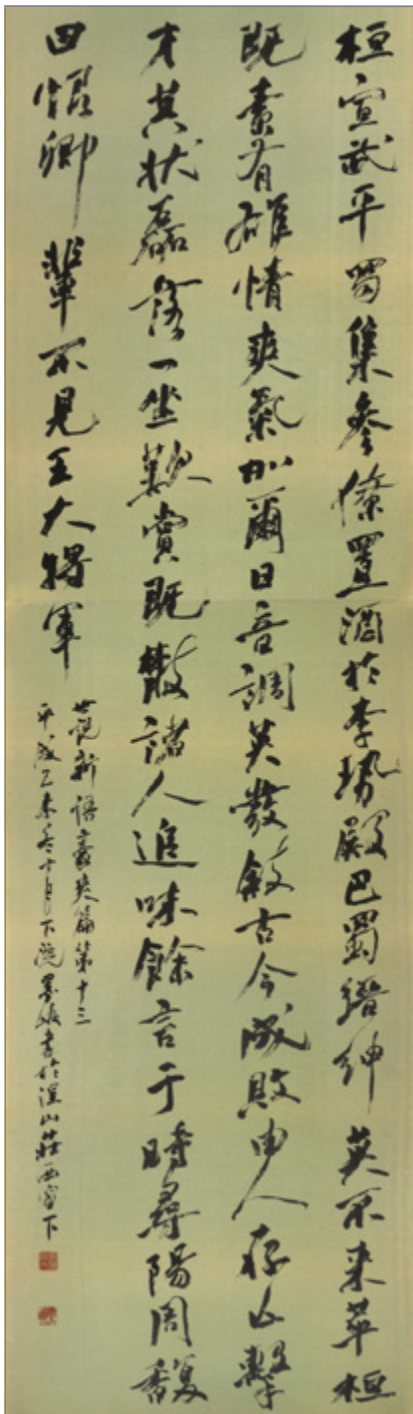 桓宣武平蜀集參僚置酒於李勢殿巴蜀縉紳莫不来萃桓
既素有雄情爽氣加爾日音調英發敘古今成敗由人存亡繫
才其状磊落一坐歎賞既散諸人追味餘言于時尋陽周馥
曰恨卿輩不見王大將軍
世說新語豪爽篇第十三
平成乙未冬十月下浣書於山莊西窗下